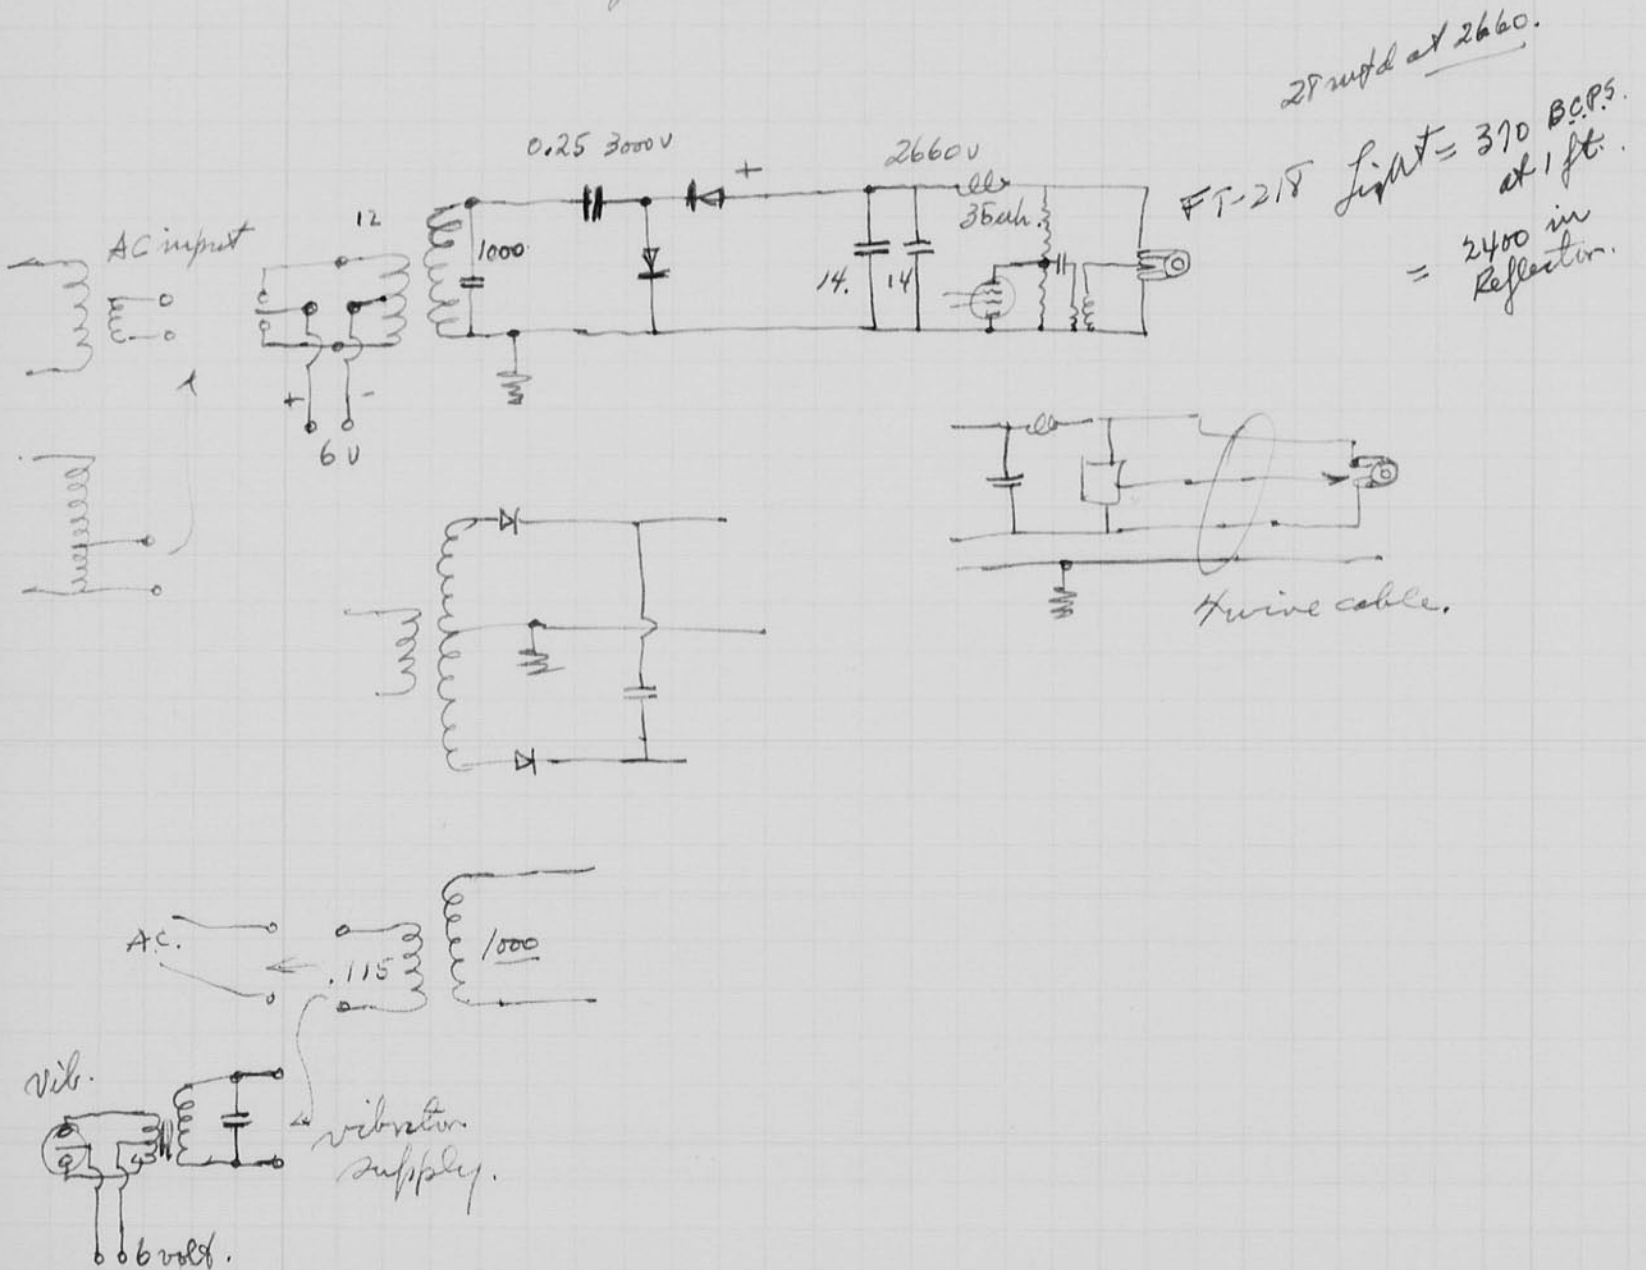 28 mfd at 2660.
0.25 3000 V
+
2660 V
FT-218 Light = 370 BCPS.
at 1 ft.
= 2400 in
Reflector.
AC input
12
1000
35uh.
14. 14
+ -
6 V
4 wire cable.
A.C.
.115
1000
Vib.
vibrator
supply.
6 volt.